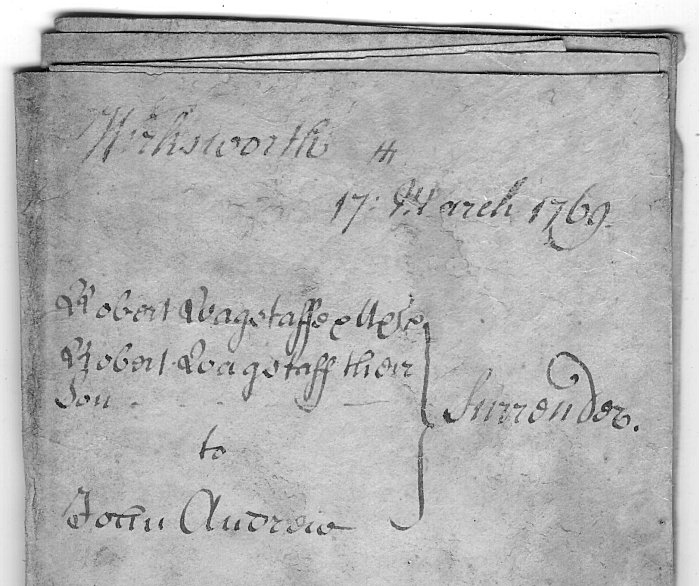 Wirksworth
17th: March 1769.
Robert Wagstaffe & Uxr
Robert Wagstaff their
Son
to
John Andrew
Surrender.